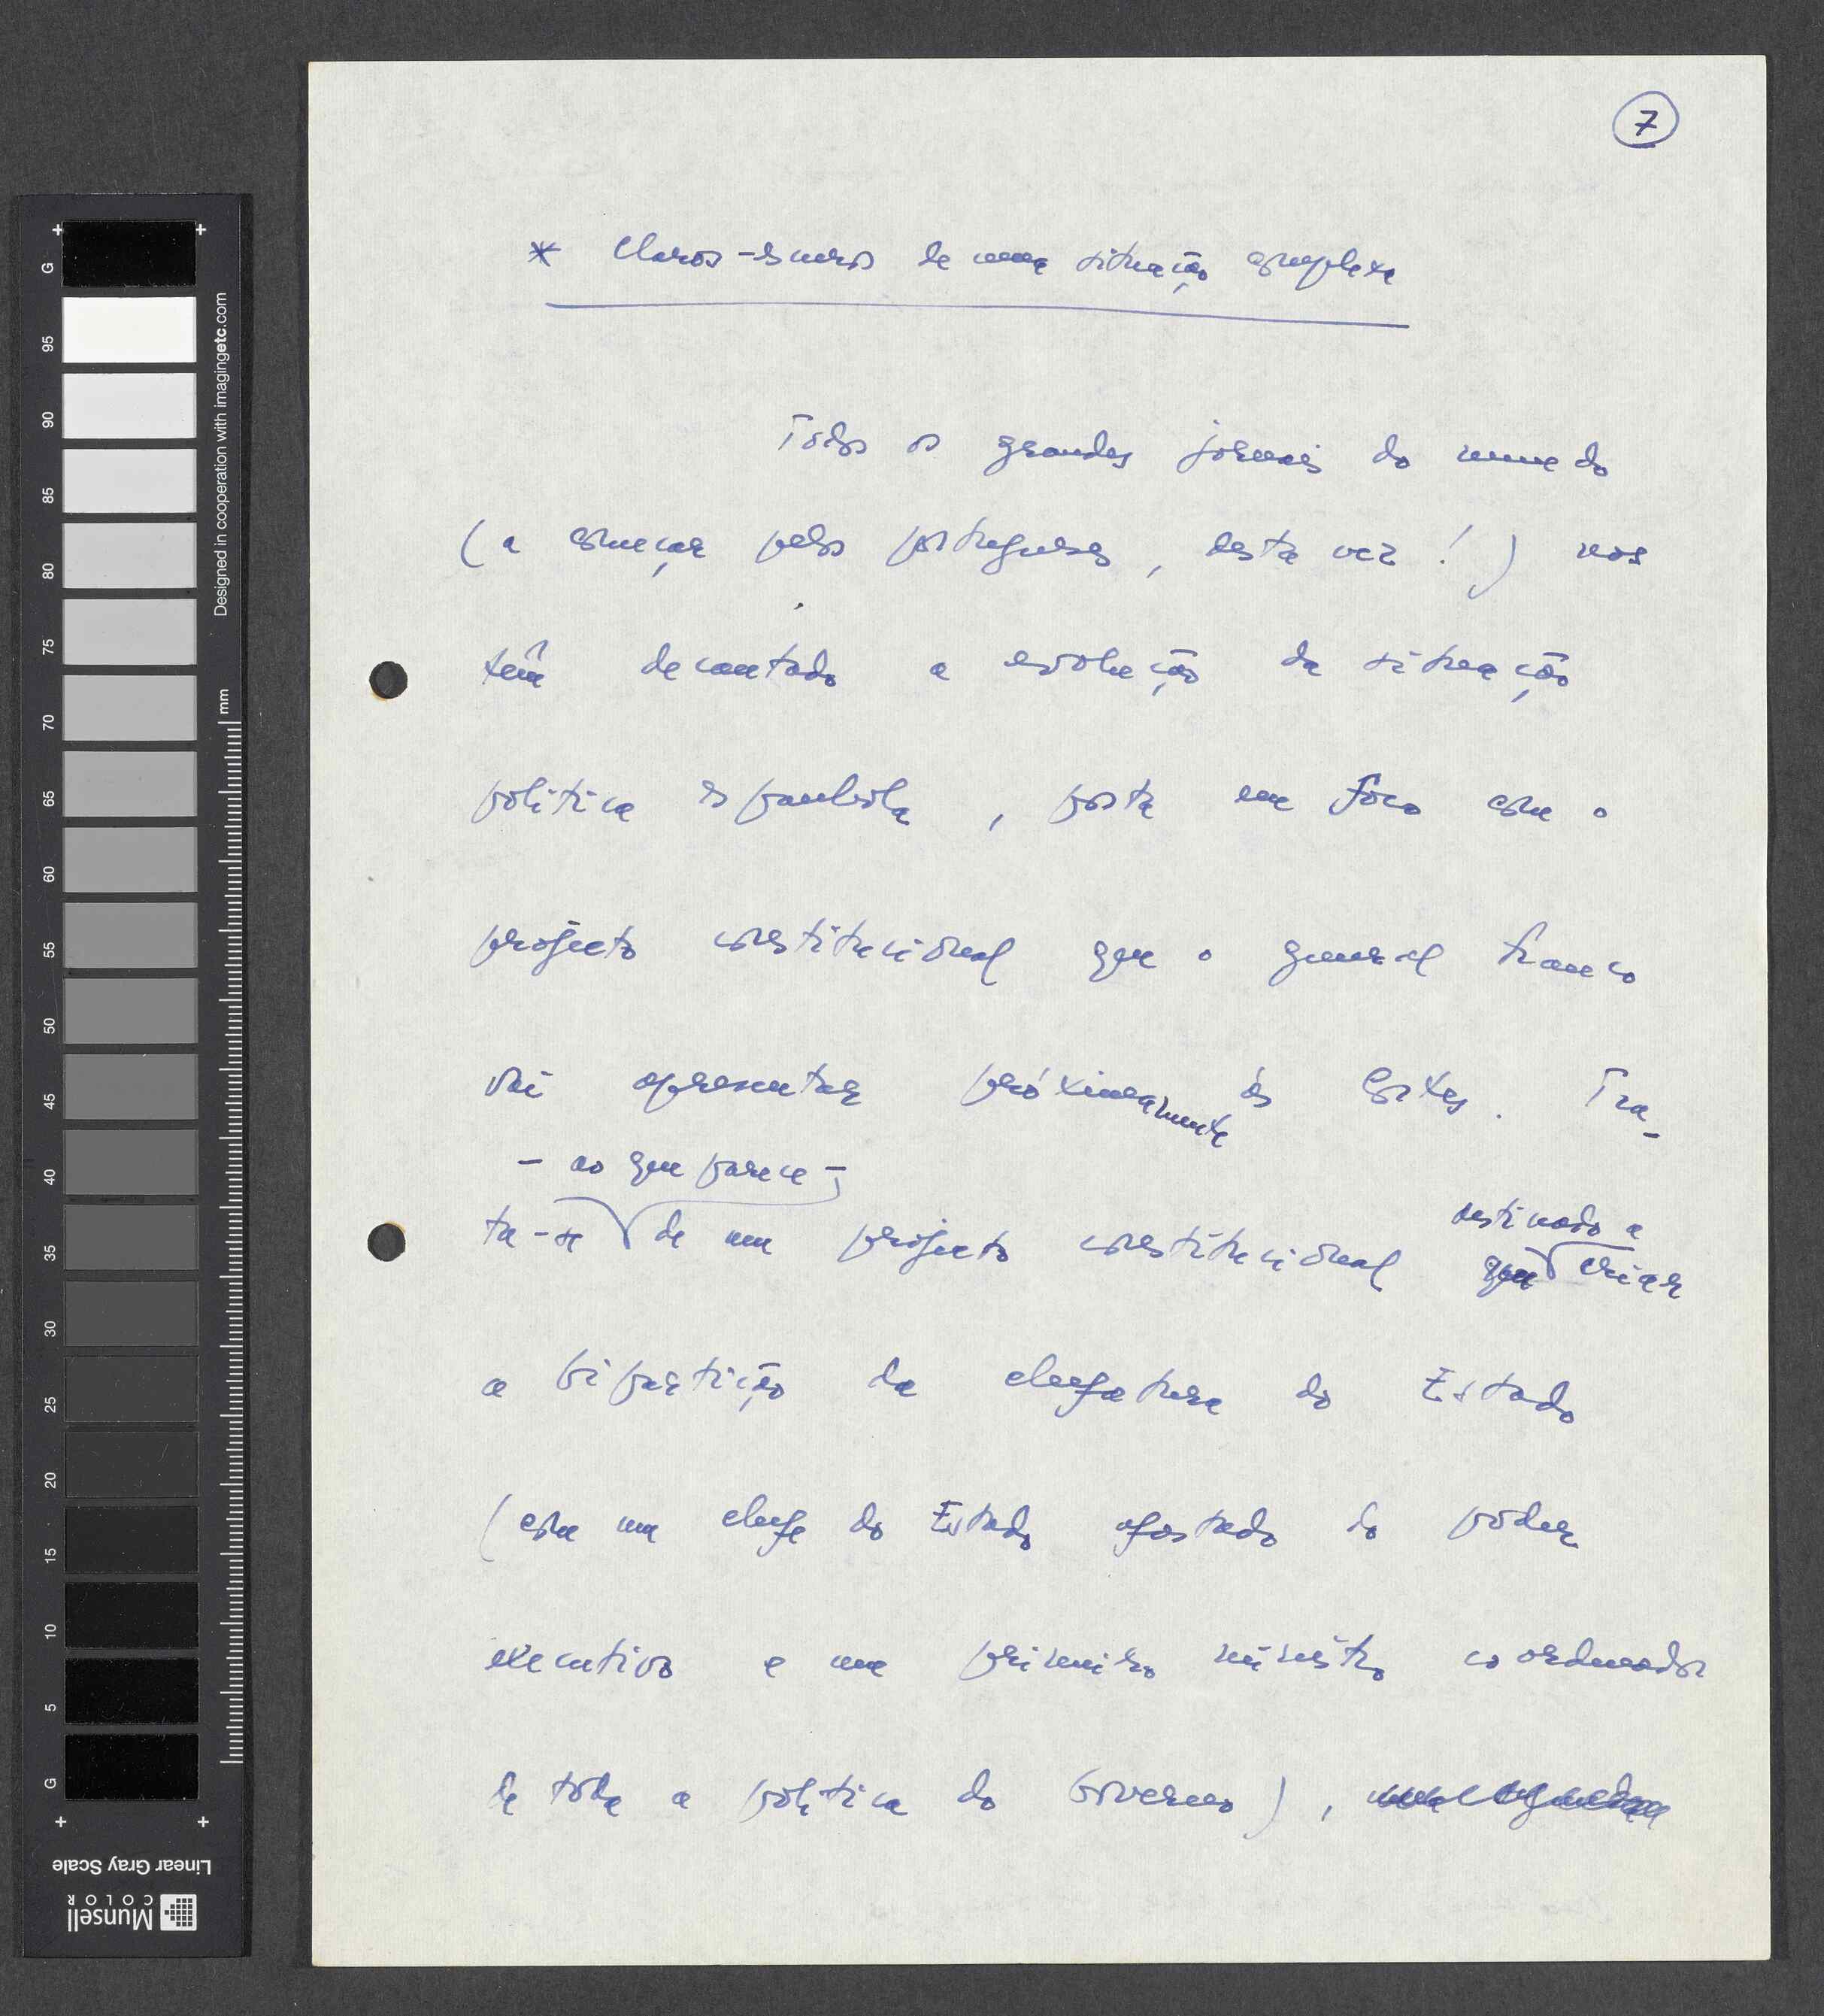 7
* Claros-escuros de uma situação complexa
Todos os grandes jornais do mundo
(a começar pelos portugueses, desta vez!) nos
têm decantado a evolução da situação
política espanhola, posta em fóco com o
projecto constitucional que o general Franco
vai apresentar próximamente às Cortes. Tra-
- ao que parece -
ta-se de um projecto constitucional destinado a criar
a bipartição da chefatura do Estado
(com um chefe do Estado afastado do poder
executivo e um primeiro ministro coordenador
de toda a política do Governo),
G 95 90 85 80 75 70 65 60 55 50 45 40 35 30 25 20 15 10 5 G
Designed in cooperation with imagingetc.com
mm
Linear Gray Scale
Munsell
COLOR